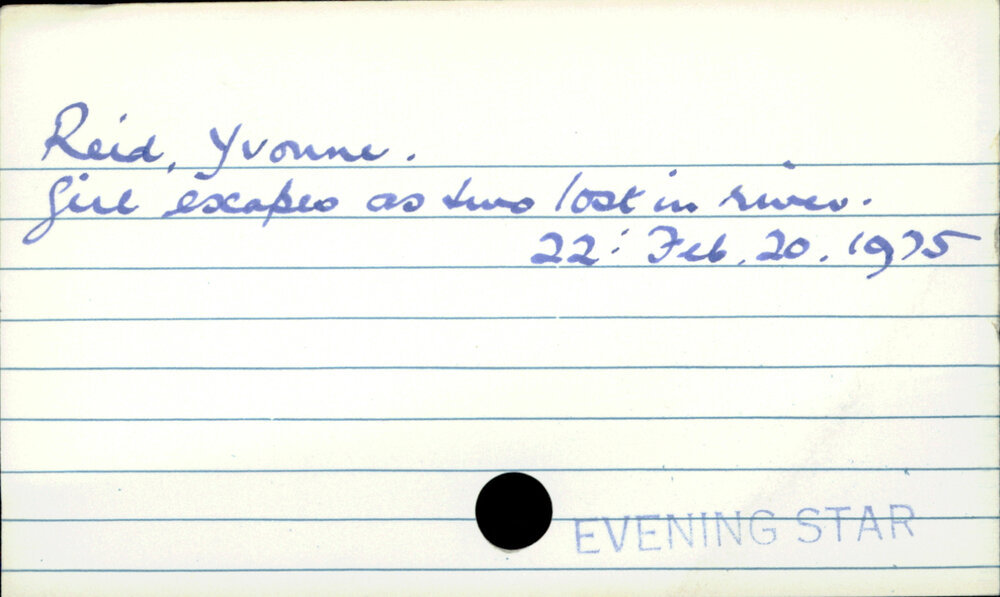 Reid, Yvonne.
Girl escapes as two lost in river.
22: Feb. 20. 1975
EVENING STAR